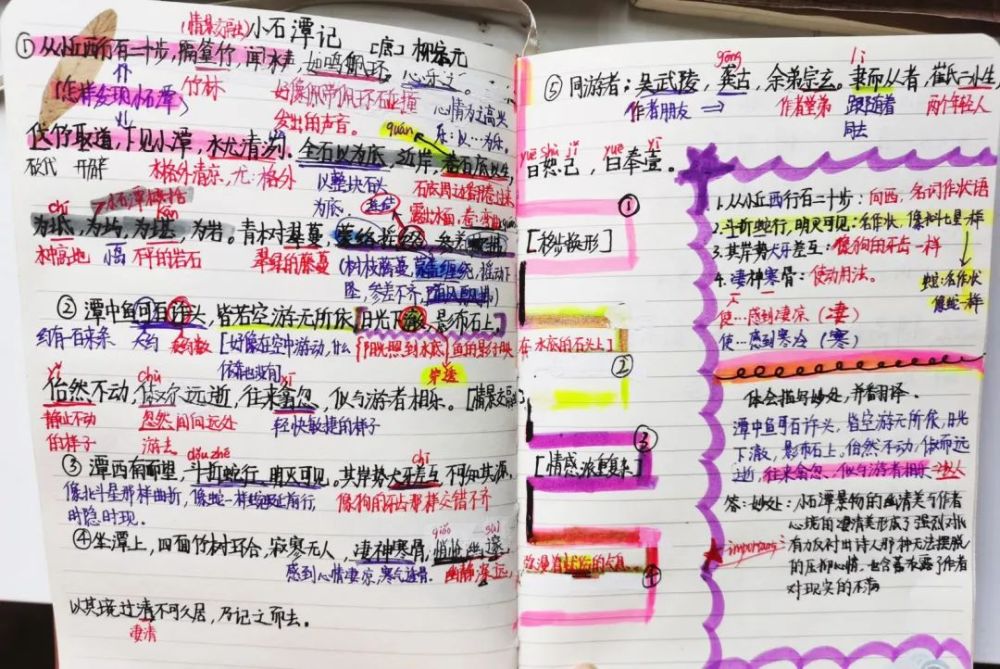 (情景交融) 小石潭记 [唐] 柳宗元
① 从小丘西行百二十步,隔篁竹,闻水声,如鸣佩环,心乐之。
(怎样发现小石潭) 竹林 好像佩带佩环石碰撞发出的声音。 心情为之高兴
乐:以…为乐。
quán
伐竹取道,下见小潭,水尤清冽。全石以为底,近岸,卷石底以出,
砍伐 开辟 水格外清凉,尤:格外 以整块石头为底。 石底周边翻卷过来露出水面,卷:弯曲
chí kān
为坻,为屿,为嵁,为岩。青树翠蔓,蒙络摇缀,参差披拂。
水中高地 小岛 不平的岩石 翠绿的藤蔓 (树枝藤蔓,
参差不齐,
② 潭中鱼可百许头,皆若空游无所依,日光下澈,影布石上。
约有一百来条 大约 表约数 [好像在空中游动,什么依靠也没有 (阳光照到水底,鱼的影子映在水底的石头上]
穿透
yǐ chù xī
佁然不动,俶尔远逝,往来翕忽,似与游者相乐。[情景交融]
静止不动的样子 忽然间向远处游去 轻快敏捷的样子
dǒu zhé chī
③ 潭西南而望,斗折蛇行,明灭可见。其岸势犬牙差互,不可知其源。
像北斗星那样曲折,像蛇一样蜿蜒前行,时隐时现。 像狗的牙齿那样交错不齐
qiǎo suì
④ 坐潭上,四面竹树环合,寂寥无人,凄神寒骨,悄怆幽邃。
感到心情凄凉,寒气透骨。 幽静深远,
以其境过清,不可久居,乃记之而去。
凄清
gōng lì
⑤ 同游者:吴武陵,龚古,余弟宗玄。隶而从者,崔氏二小生,
作者朋友 ⇒ 作者堂弟 跟随着同去 两个年轻人
yuē shù jǐ yuē yī
曰恕己,曰奉壹。
①
[移步换形]
②
③
[情感波重复杂]
④
1.从小丘西行百二十步:向西,名词作状语
2.斗折蛇行,明灭可见:名作状,像北斗七星一样
蛇:名作状 像蛇一样
3.其岸势犬牙差互:像狗的牙齿一样
4.凄神寒骨:使动用法。
使…感到凄凉 (凄)
使…感到寒冷 (寒)
体会描写妙处,并看翻译。
潭中鱼可百许头,皆空游无所依,日光
下澈,影布石上,佁然不动,俶而远
逝,往来翕忽,似与游者相乐
答:妙处:小石潭景物的幽清美与作者
心境的凄清美形成了强烈对比
important 有力反衬出诗人那种无法摆脱
的压抑心情,也含蓄表露了作者
对现实的不满